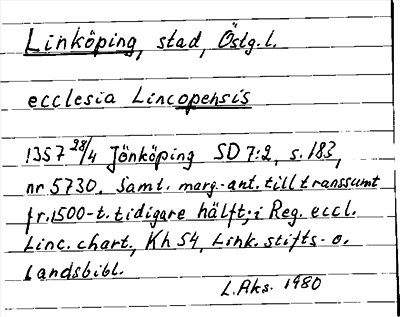 Linköping, stad, Östg.l.
ecclesia Lincopensis
1357 28/4 Jönköping SD 7:2, s. 183,
nr 5730. Samt. marg.-ant. till transsumt
fr. 1500-t. tidigare hälft; i Reg. eccl.
Linc. chart., Kh 54, Link. stifts- o.
Landsbibl.
L. Aks. 1980